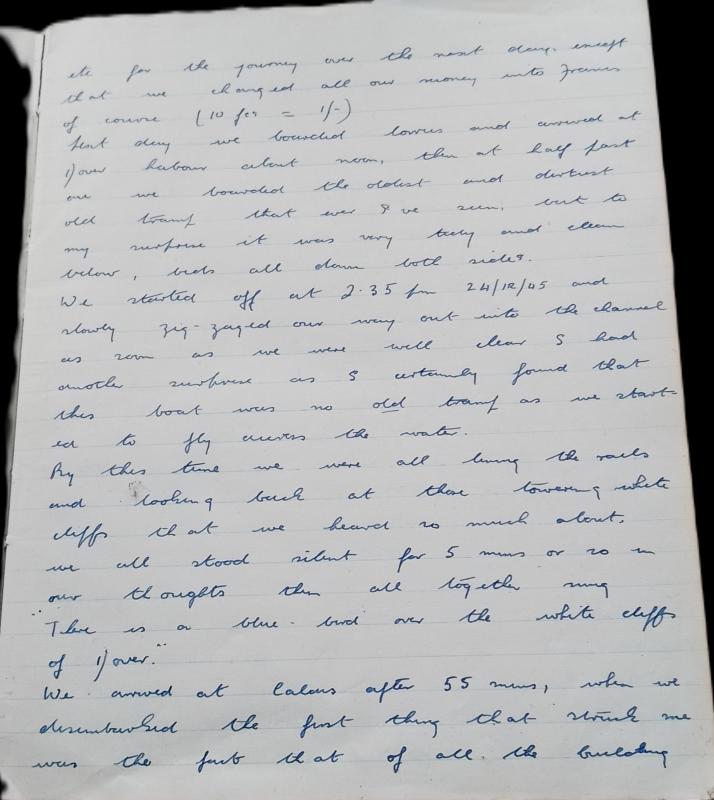 etc for the journey over the next day, except
that we changed all our money into Francs
of course (10 fcs = 1/-)
Next day we boarded lorries and arrived at
Dover harbour about noon, then at half past
one we boarded the oldest and dirtiest
old tramp that ever I've seen, but to
my surprise it was very tidy and clean
below, beds all down both sides.
We started off at 2.35 pm 24/12/45 and
slowly zig-zaged our way out into the channel
as soon as we were well clear I had
another surprise as I certainly found that
this boat was no old tramp as we start-
ed to fly across the water.
By this time we were all lining the rails
and looking back at those towering white
cliffs that we heard so much about,
we all stood silent for 5 mins or so in
our thoughts then all together sung
"There is a blue-bird over the white cliffs
of Dover."
We arrived at Calais after 55 mins, when we
disembarked the first thing that struck me
was the fact that of all the building